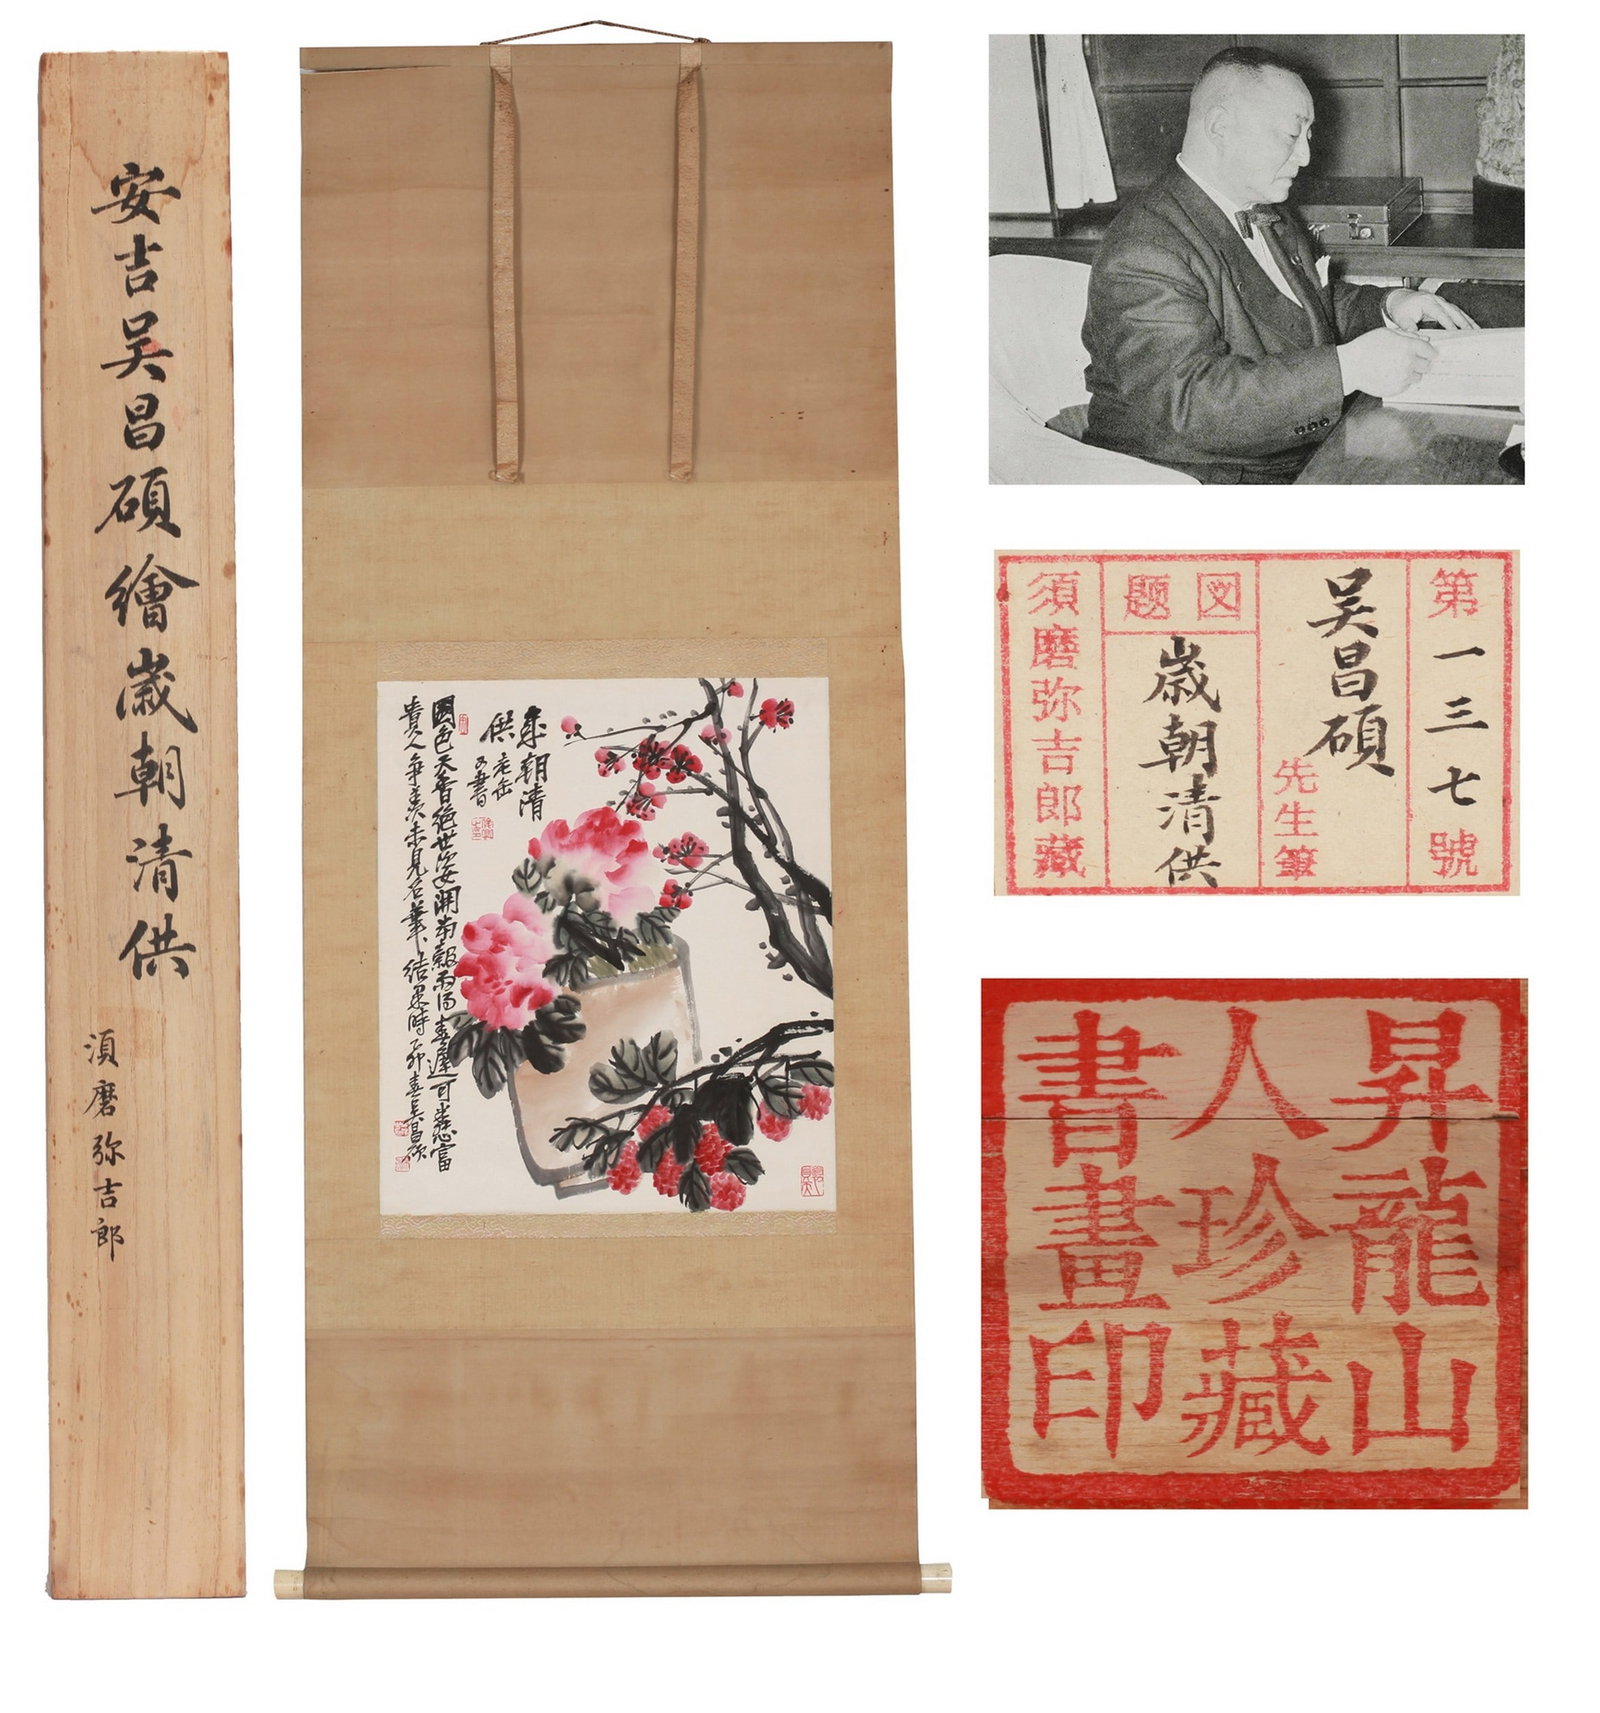 安吉吴昌碩繪歲朝清供
須磨弥吉郎
歲朝清
供老缶
又書
國色天香絕世姿開當穀雨得春遲可無愁富
貴人爭羨未見名華結果時乙卯春吴昌碩
第一三七號
吴昌碩
先生筆
図題
歲朝清供
須磨弥吉郎藏
昇龍山
人珍藏
書畫印